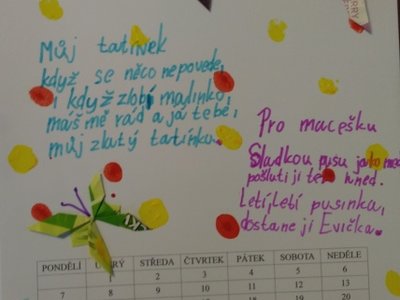 RRY
Můj tatínek
když se něco nepovede,
i když zlobí malinko,
máš mě rád a já tebe,
můj zlatý tatínku.
Pro macešku
Sladkou pusu jako
pošlu ti ji teď hned.
Letí, letí pusinka,
dostane ji Evička.
PONDĚLÍ ÚTERÝ STŘEDA ČTVRTEK PÁTEK SOBOTA NEDĚLE
1 2 3 4 5 6
7 8 10 11 12 13